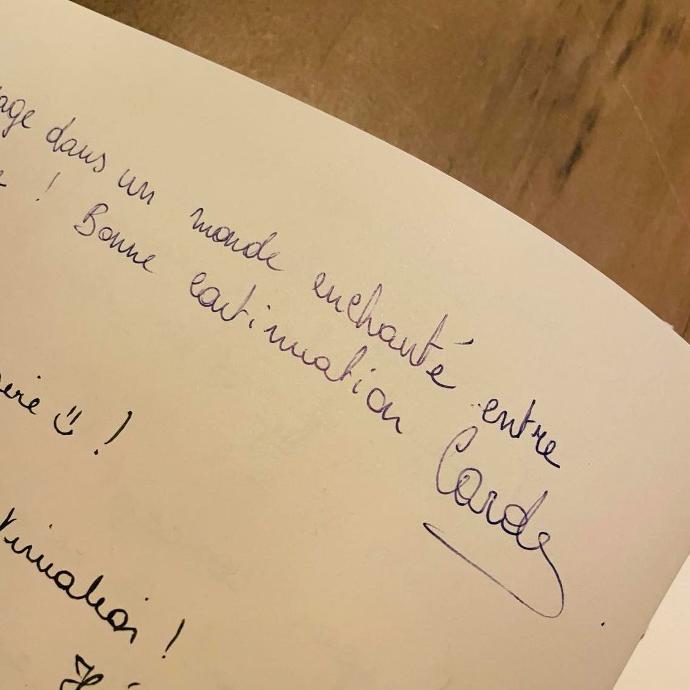 age dans un monde enchanté entre
! Bonne continuation
Carole
ire !
tinuation !